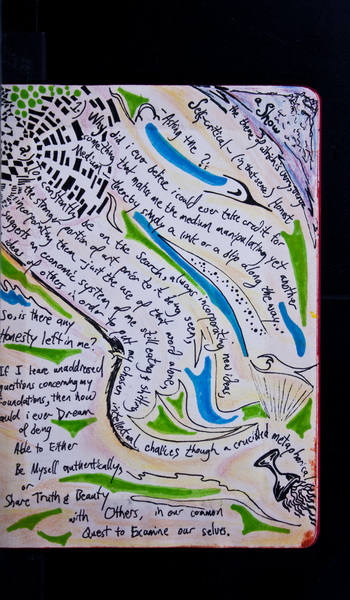 a Show
Self-critical, in that sense, Honest.
Asking me??
1. Why did i ever believe i could ever take credit for
something that makes me the medium manipulating yet another
Medium? thereby simply a link or a slip along the way.
for constantly i be on the Search, always incorporating new ideas,
the strongest portion of art prior to it being
incorporating them. Just the use of that word alone,
suggests an economic system of me still eating & spitting
ideas of others in order to put my chosen intellectual chalices though a crucified metaphorical
So, is there any
Honesty left in me?
If I leave unaddressed
questions concerning my
foundations, then how
could i ever Dream
of being
Able to Either
Be Myself authentically,
or
Share Truth & Beauty
with Others, in our common
Quest to Examine our selves.